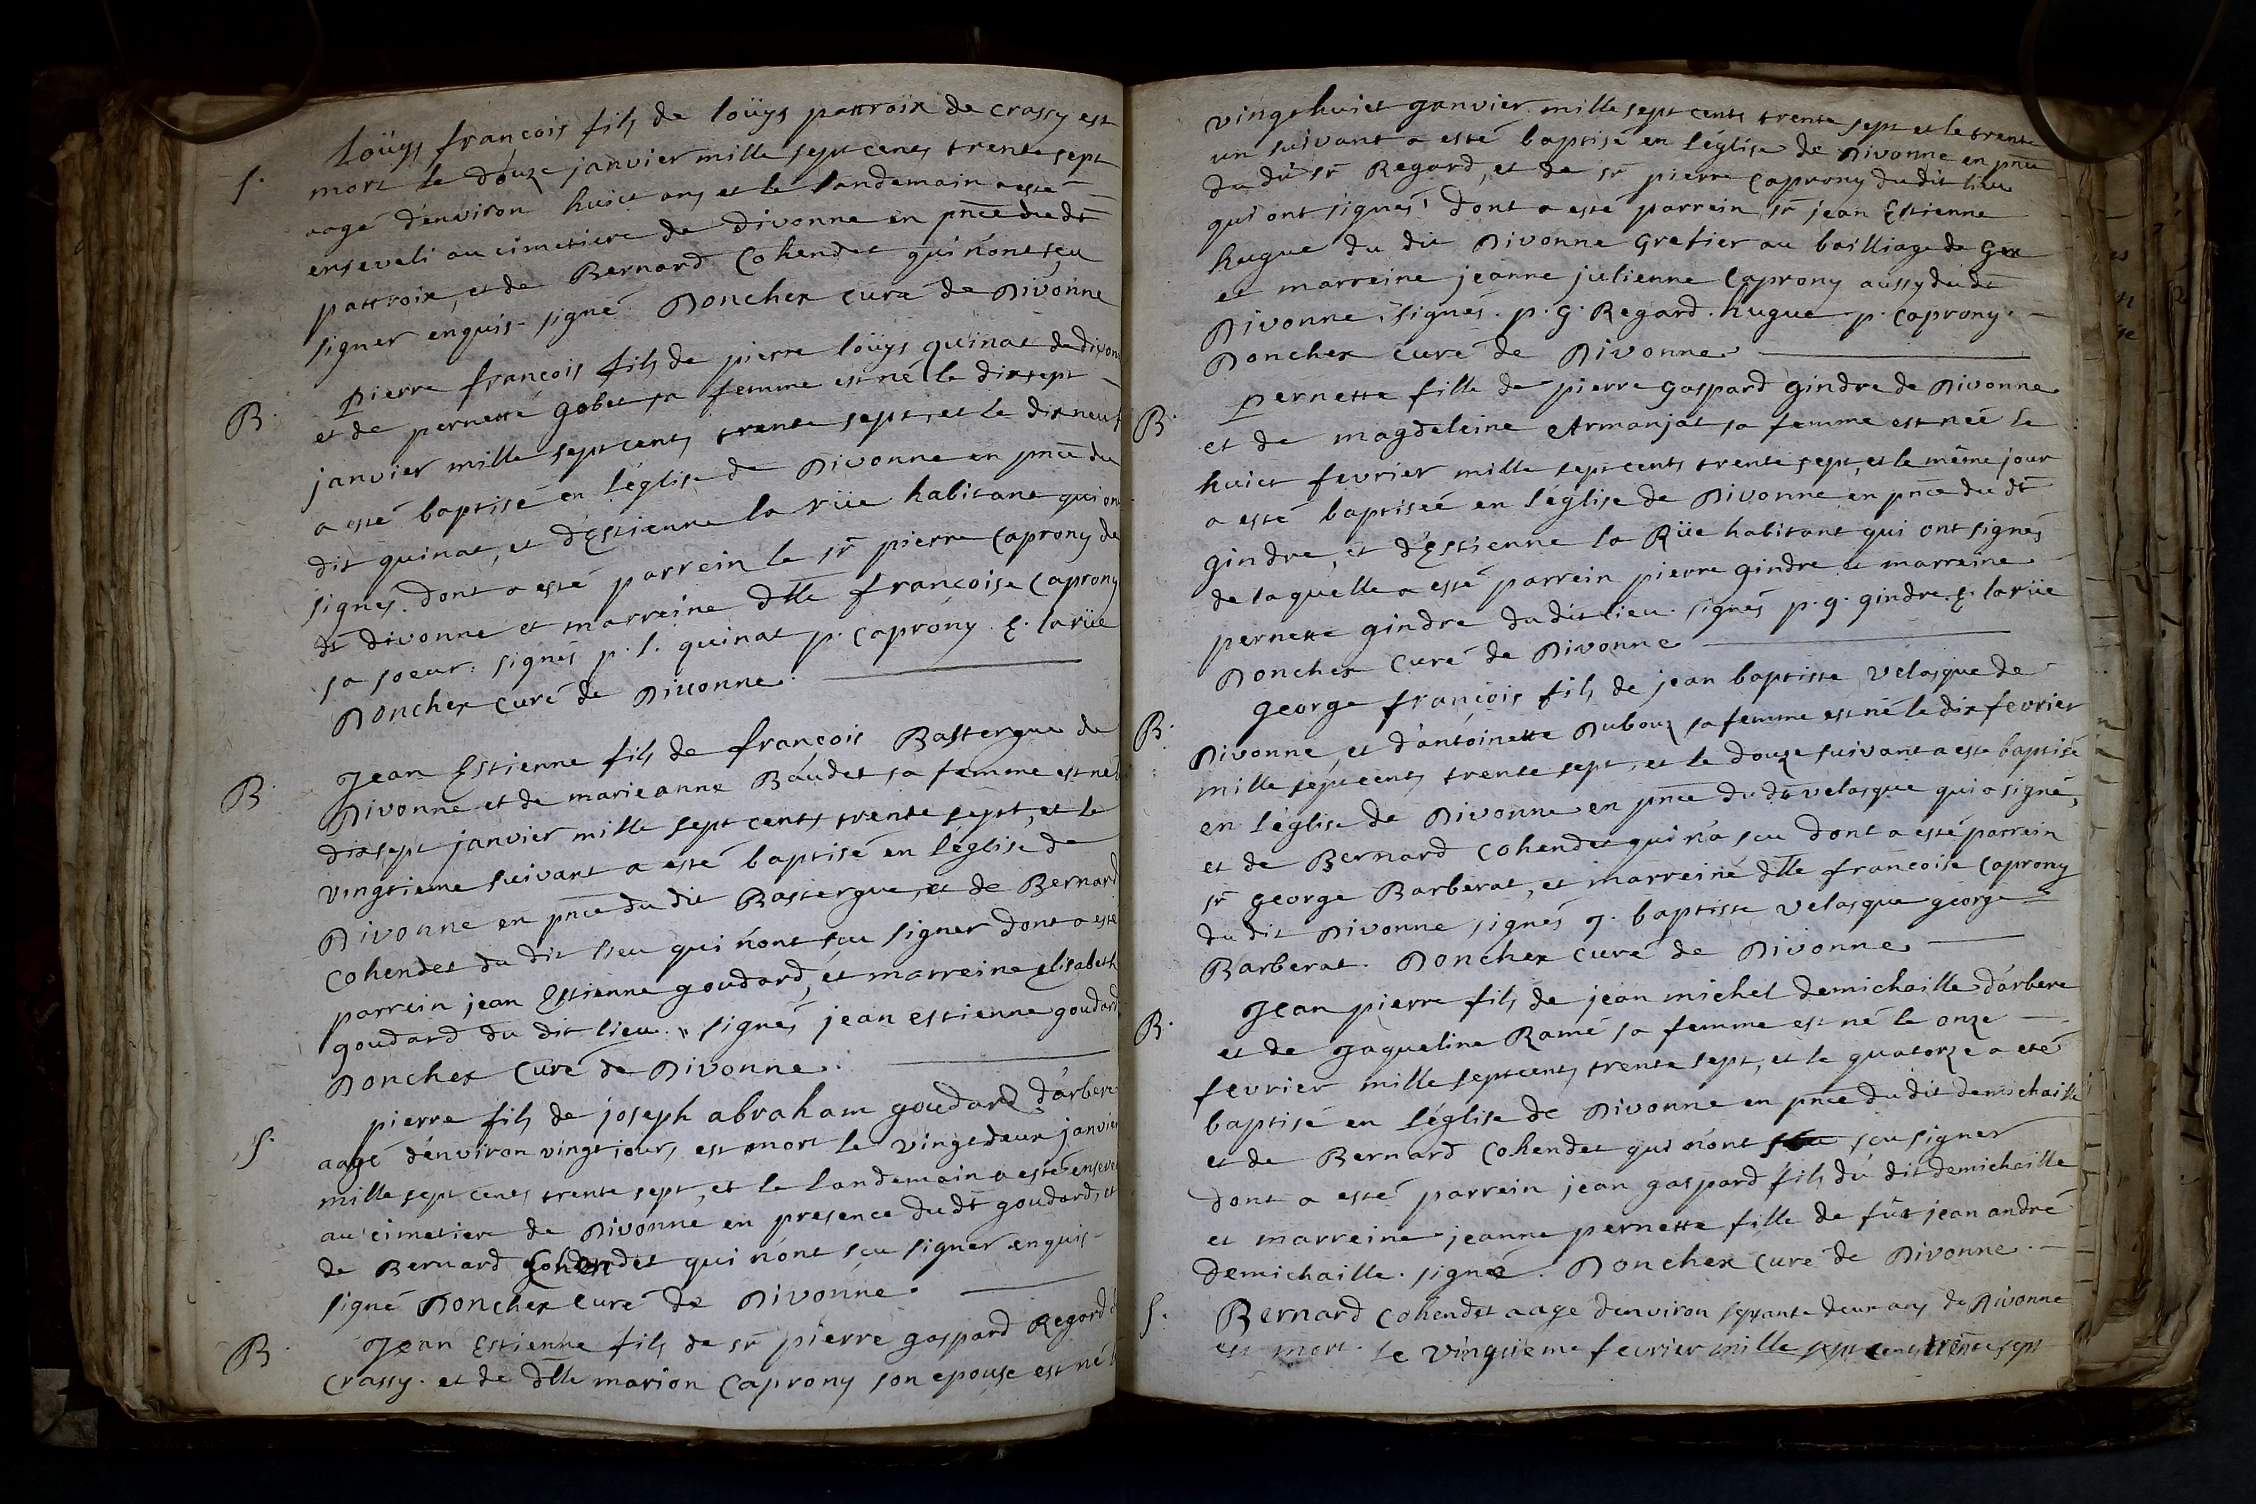 Loüys françois fils de loüys pattroix de Crassy est
S. mort le douze janvier mille sept cents trente sept
aagé d'environ huict ans et le landemain a esté
enseveli au cimetiere de Divonne en pñce du dt
pattroix, et de Bernard Cohendet qui n'ont sçu
signer enquis. signé Donchex curé de Divonne
Pierre françois fils de pierre loüys quinat de divon
B. et de pernette gobet sa femme est né le dixsept
janvier mille sept cents trente sept, et le dixneuf
a esté baptisé en l'église de Divonne en pñce du
dit quinat, et d'Estienne la rüe habitant qui ont
signés. dont a esté parrein le sr pierre Caprony du
dt divonne et marreine dlle françoise Caprony
sa soeur: signés p. l. quinat p. Caprony. E. larüe
Donchex curé de Divonne.
Jean Estienne fils de françois Bastergue de
B. Divonne et de marieanne Baudet sa femme est né l
dixsept janvier mille sept cents trente sept, et le
vingtieme suivant a esté baptisé en l'église de
Divonne en pñce du dit Bastergue, et de Bernard
Cohendet du dit lieu qui n'ont sçu signer dont a esté
parrein jean Estienne goudard, et marreine elisabeth
goudard du dit lieu. signés jean estienne goudard
Donchex Curé de Divonne.
pierre fils de joseph abraham goudard d'arbere
S. aagé d'environ vingt jours est mort le vingtdeux janvier
mille sept cents trente sept, et le landemain a esté enseve
au cimetiere de Divonne en presence du dt goudard, et
de Bernard Cohendet qui n'ont sçu signer enquis
signé Donchex curé de Divonne.
Jean Estienne fils de sr pierre gaspard Regard d
B. Crassy. et de dlle marion Caprony son epouse est né l
vingt huict janvier mille sept cents trente sept et le trente
un suivant a esté baptisé en l'église de Divonne en pñce
du dit sr Regard, et de sr pierre Caprony du dit lieu
qui ont signés dont a esté parrein sr jean Estienne
hugue du dit Divonne Grefier au bailliage de Gex
et marreine jeanne julienne Caprony aussy du dt
Divonne, signés. p. g. Regard. hugue p. Caprony.
Donchex curé de Divonne
Pernette fille de pierre gaspard gindre de Divonne
B. et de magdeleine Armanjat sa femme est née le
huict fevrier mille sept cents trente sept, et le même jour
a esté baptiseé en l'église de Divonne en pñce du dt
gindre, et d'Estienne la Rüe habitant qui ont signés
de laquelle a esté parrein pierre gindre et marreine
pernette gindre du dit lieu. signés p. g. gindre. E. larüe
Donchex Curé de Divonne
George françois fils de jean baptiste Velasque de
B. Divonne, et d'antoinette Dubouz sa femme est né le dix fevrier
mille sept cents trente sept, et le douze suivant a esté baptisé
en l'église de Divonne en pñce du dt velasque qui a signé,
et de Bernard Cohendet qui n'a sçu dont a esté parrein
sr george Barberat, et marreine dlle francoise Caprony
du dit Divonne signés J. baptiste velasque george
Barberat. Donchex curé de Divonne
Jean pierre fils de jean michel demichaille d'arbere
B. et de Jaqueline Ramé sa femme est né le onze
fevrier mille sept cents trente sept, et le quatorze a eté
baptisé en l'église de Divonne en pñce du dit demichaille
et de Bernard Cohendet qui n'ont sçu signer
dont a esté parrein jean gaspard fils du dit demichaille
et marreine jeanne pernette fille de fût jean andré
demichaille. signé. Donchex Curé de Divonne.
S. Bernard Cohendet aagé denviron septante deux ans de Divonne
est mort le vingtieme fevrier mille sept cents trente sept